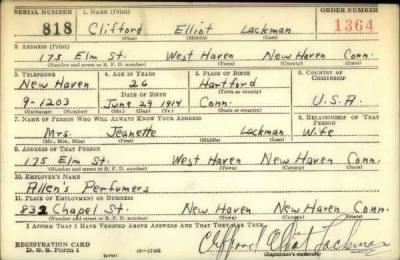 SERIAL NUMBER 1. NAME (Print) ORDER NUMBER
818 Clifford Elliot Lackman 1364
(First) (Middle) (Last)
2. ADDRESS (Print)
175 Elm St. West Haven New Haven Conn.
(Number and street or R. F. D. number) (Town) (County) (State)
3. TELEPHONE 4. AGE IN YEARS 5. PLACE OF BIRTH 6. COUNTRY OF CITIZENSHIP
New Haven 26 Hartford
DATE OF BIRTH (Town or county)
9-1203 June 29 1914 Conn. U.S.A.
(Exchange) (Number) (Mo.) (Day) (Yr.) (State or country)
7. NAME OF PERSON WHO WILL ALWAYS KNOW YOUR ADDRESS 8. RELATIONSHIP OF THAT PERSON
Mrs. Jeanette Lackman Wife
(Mr., Mrs., Miss) (First) (Middle) (Last)
9. ADDRESS OF THAT PERSON
175 Elm St. West Haven New Haven Conn.
(Number and street or R. F. D. number) (Town) (County) (State)
10. EMPLOYER'S NAME
Allen's Perfumers
11. PLACE OF EMPLOYMENT OR BUSINESS
832 Chapel St. New Haven New Haven Conn.
(Number and street or R. F. D. number) (Town) (County) (State)
I AFFIRM THAT I HAVE VERIFIED ABOVE ANSWERS AND THAT THEY ARE TRUE.
REGISTRATION CARD
D. S. S. Form 1 Clifford Elliot Lackman
(Registrant's signature)